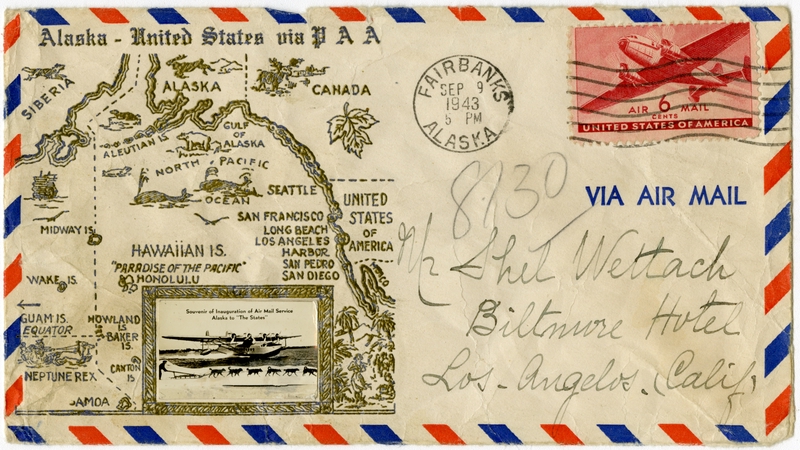 Alaska - United States via P A A
SIBERIA
ALASKA
CANADA
ALEUTIAN IS.
GULF
OF
ALASKA
NORTH PACIFIC
OCEAN
SEATTLE
SAN FRANCISCO
LONG BEACH
LOS ANGELES
HARBOR
SAN PEDRO
SAN DIEGO
UNITED
STATES
OF
AMERICA
MIDWAY IS.
HAWAIIAN IS.
"PARADISE OF THE PACIFIC"
HONOLULU
WAKE IS.
GUAM IS.
EQUATOR
HOWLAND
IS
BAKER
IS.
NEPTUNE REX
CANTON
IS
SAMOA
Souvenir of Inauguration of Air Mail Service
Alaska to "The States"
FAIRBANKS
SEP 9
1943
5 PM
ALASKA
AIR 6 MAIL
CENTS
UNITED STATES OF AMERICA
VIA AIR MAIL
8/30
Mr Shel Wettach
Biltmore Hotel
Los-Angelos. (Calif)